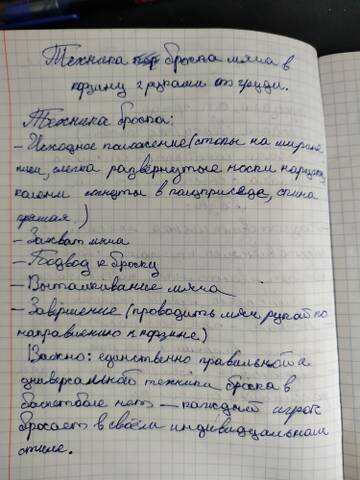 Техника броска мяча в
корзину 2 руками от груди.
Техника броска:
- Исходное положение (стопы на ширине
плеч, слегка развёрнутые носки наружу,
колени согнуты в полуприседе, спина
прямая.)
- Захват мяча
- Подвод к броску
- Выталкивание мяча
- Завершение (проводить мяч рукой по
направлению к корзине)
Важно: единственно правильной и
универсальной техники броска в
баскетболе нет — каждый игрок
бросает в своём индивидуальном
стиле.